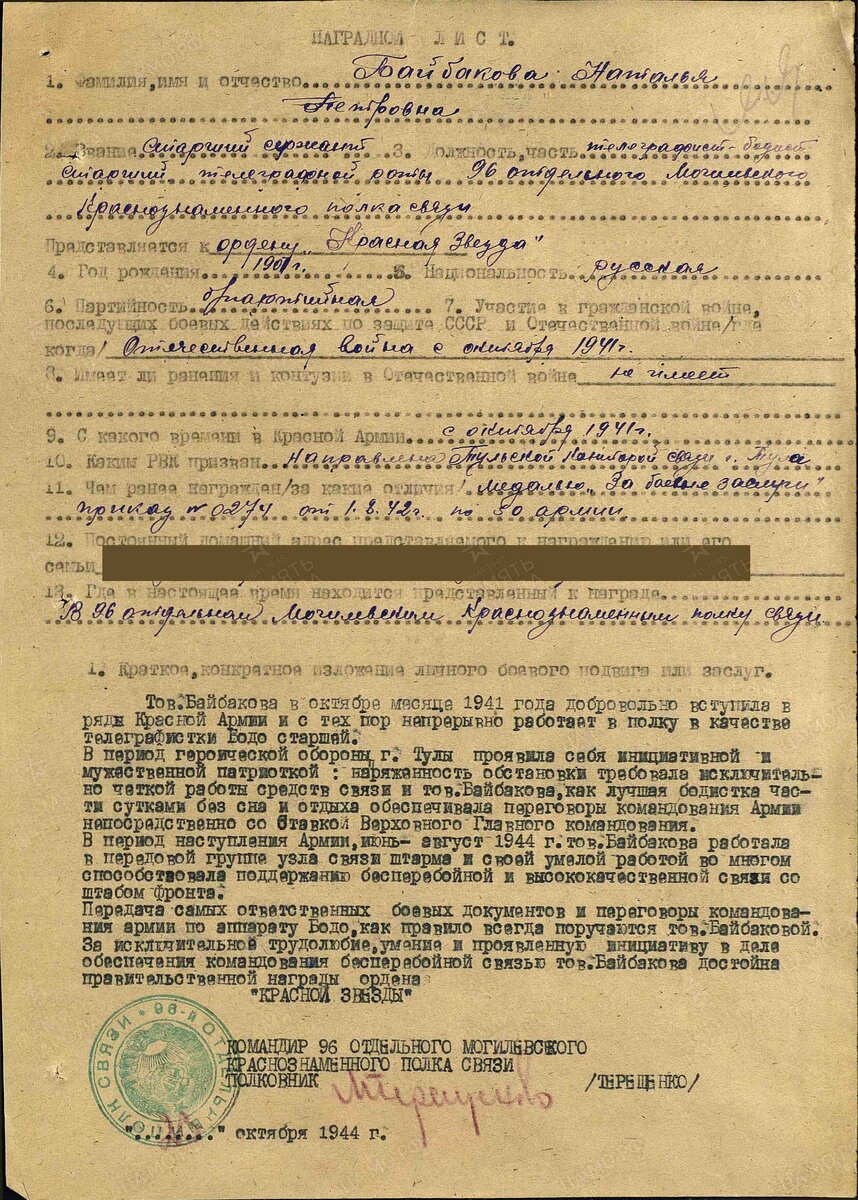 НАГРАДНОЙ ЛИСТ.
1. Фамилия,имя и отчество Байбакова Наталья
Петровна
2. Звание старший сержант 3. Должность,часть телеграфист-бодист
старший телеграфной роты 96 отдельного Могилевского
Краснознаменного полка связи
Представляется к ордену „Красная Звезда"
4. Год рождения 1901г. 5. Национальность русская
6. Партийность беспартийная 7. Участие в гражданской войне,
последующих боевых действиях по защите СССР и Отечественной войне/где
когда/ Отечественная война с октября 1941г.
8. Имеет ли ранения и контузии в Отечественной войне не имеет
9. С какого времени в Красной Армии с октября 1941г.
10. Каким РВК призван Направлена Тульской Конторой связи г. Тула
11. Чем ранее награжден/за какие отличия/ медалью „За боевые заслуги"
приказ № 0274 от 1.8.42г. по 50 армии.
12. Постоянный домашний адрес представляемого к награждению или его
семьи
13. Где в настоящее время находится представленный к награде
В 96 отдельном Могилевском Краснознаменном полку связи
1. Краткое,конкретное изложение личного боевого подвига или заслуг.
Тов.Байбакова в октябре месяце 1941 года добровольно вступила в
ряды Красной Армии и с тех пор непрерывно работает в полку в качестве
телеграфистки Бодо старшей.
В период героической обороны г. Тулы проявила себя инициативной и
мужественной патриоткой : наряженность обстановки требовала исключитель-
но четкой работы средств связи и тов.Байбакова,как лучшая бодистка час-
ти сутками без сна и отдыха обеспечивала переговоры командования Армии
непосредственно со Ставкой Верховного Главного командования.
В период наступления Армии,июнь- август 1944 г.тов.Байбакова работала
в передовой группе узла связи штарма и своей умелой работой во многом
способствовала поддержанию бесперебойной и высококачественной связи со
штабом фронта.
Передача самых ответственных боевых документов и переговоры командова-
ния армии по аппарату Бодо,как правило всегда поручаются тов.Байбаковой.
За исключительное трудолюбие,умение и проявленную инициативу в деле
обеспечения командования бесперебойной связью тов.Байбакова достойна
правительственной награды ордена
"КРАСНОЙ ЗВЕЗДЫ"
КОМАНДИР 96 ОТДЕЛЬНОГО МОГИЛЕВСКОГО
КРАСНОЗНАМЕННОГО ПОЛКА СВЯЗИ
ПОЛКОВНИК /ТЕРЕЩЕНКО/
"........" октября 1944 г.
96-й ОТДЕЛЬНЫЙ ПОЛК СВЯЗИ